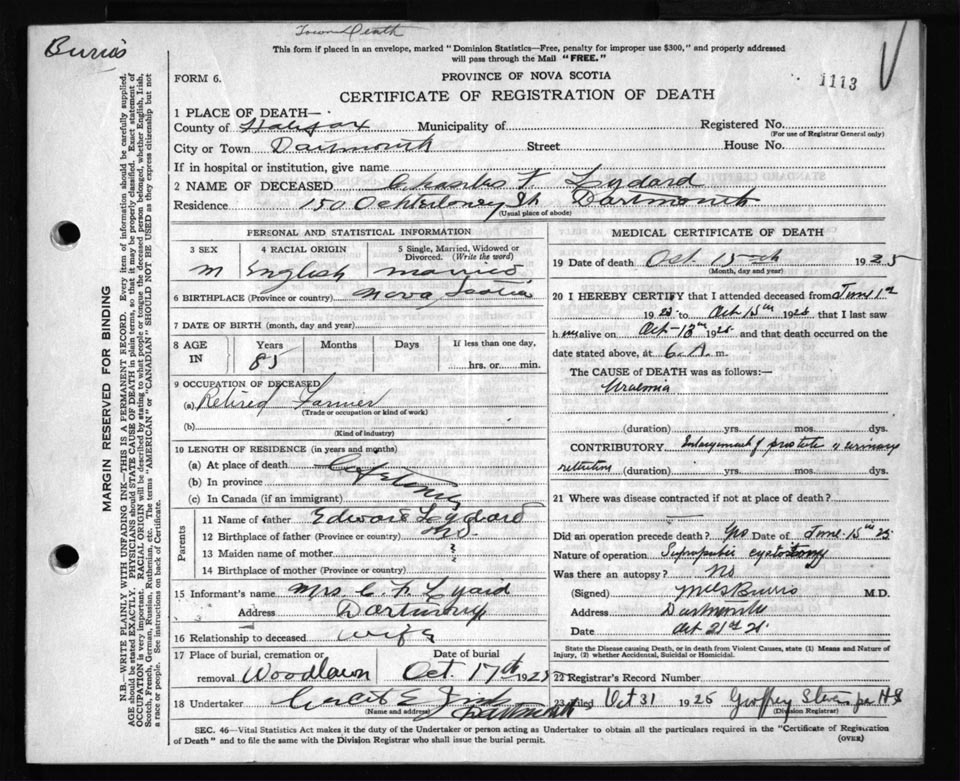 Town Death
Burris
This form if placed in an envelope, marked "Dominion Statistics—Free, penalty for improper use $300," and properly addressed
will pass through the Mail "FREE."
FORM 6.
PROVINCE OF NOVA SCOTIA
1113
CERTIFICATE OF REGISTRATION OF DEATH
1 PLACE OF DEATH—
County of Halifax Municipality of Registered No.
(For use of Registrar General only)
City or Town Dartmouth Street House No.
If in hospital or institution, give name
2 NAME OF DECEASED Charles F Lydard
Residence 150 Ochterloney St Dartmouth
(Usual place of abode)
PERSONAL AND STATISTICAL INFORMATION
3 SEX 4 RACIAL ORIGIN 5 Single, Married, Widowed or Divorced. (Write the word)
M English married
6 BIRTHPLACE (Province or country) Nova Scotia
7 DATE OF BIRTH (month, day and year)
8 AGE IN Years Months Days If less than one day,
85 hrs. or min.
9 OCCUPATION OF DECEASED
(a) Retired Farmer
(Trade or occupation or kind of work)
(b)
(Kind of industry)
10 LENGTH OF RESIDENCE (in years and months)
(a) At place of death
(b) In province
(c) In Canada (if an immigrant)
Parents
11 Name of father Edward Lydard
12 Birthplace of father (Province or country) N.S.
13 Maiden name of mother ?
14 Birthplace of mother (Province or Country) ?
15 Informant's name Mrs. C. F.
Address Dartmouth
16 Relationship to deceased wife
17 Place of burial, cremation or removal Date of burial
Woodlawn Oct. 17th 1925
18 Undertaker
(Name and address) Dartmouth
MEDICAL CERTIFICATE OF DEATH
19 Date of death Oct 15th 1925
(Month, day and year)
20 I HEREBY CERTIFY that I attended deceased from June 1st
1925 to Oct 15th 1925 that I last saw
him alive on Oct-13th 1925 and that death occurred on the
date stated above, at 6.A. m.
The CAUSE of DEATH was as follows:—
Uraemia
(duration) yrs. mos. dys.
CONTRIBUTORY Enlargement of prostate & urinary
retention (duration) yrs. mos. dys.
21 Where was disease contracted if not at place of death?
Did an operation precede death? Yes Date of June-15th 25
Nature of operation Suprapubic cystotomy
Was there an autopsy? No
(Signed) Burris M.D.
Address Dartmouth
Date Oct 21st 25
State the Disease causing Death, or in death from Violent Causes, state (1) Means and Nature of
Injury, (2) whether Accidental, Suicidal or Homicidal.
22 Registrar's Record Number
23 Filed Oct 31 1925 Geoffrey Stevens per HS
(Division Registrar)
SEC. 46—Vital Statistics Act makes it the duty of the Undertaker or person acting as Undertaker to obtain all the particulars required in the "Certificate of Registration
of Death" and to file the same with the Division Registrar who shall issue the burial permit.
(OVER)
MARGIN RESERVED FOR BINDING
N.B.—WRITE PLAINLY WITH UNFADING INK—THIS IS A PERMANENT RECORD. Every item of information should be carefully supplied.
AGE should be stated EXACTLY. PHYSICIANS should STATE CAUSE OF DEATH in plain terms, so that it may be properly classified. Exact statement of
OCCUPATION is very important. RACIAL ORIGIN will be described by stating to what people or tongue the deceased person belonged, whether English, Irish,
Scotch, French, German, Russian, Ruthenian, etc. The terms "AMERICAN" or "CANADIAN" SHOULD NOT BE USED as they express citizenship but not
a race or people. See instructions on back of Certificate.